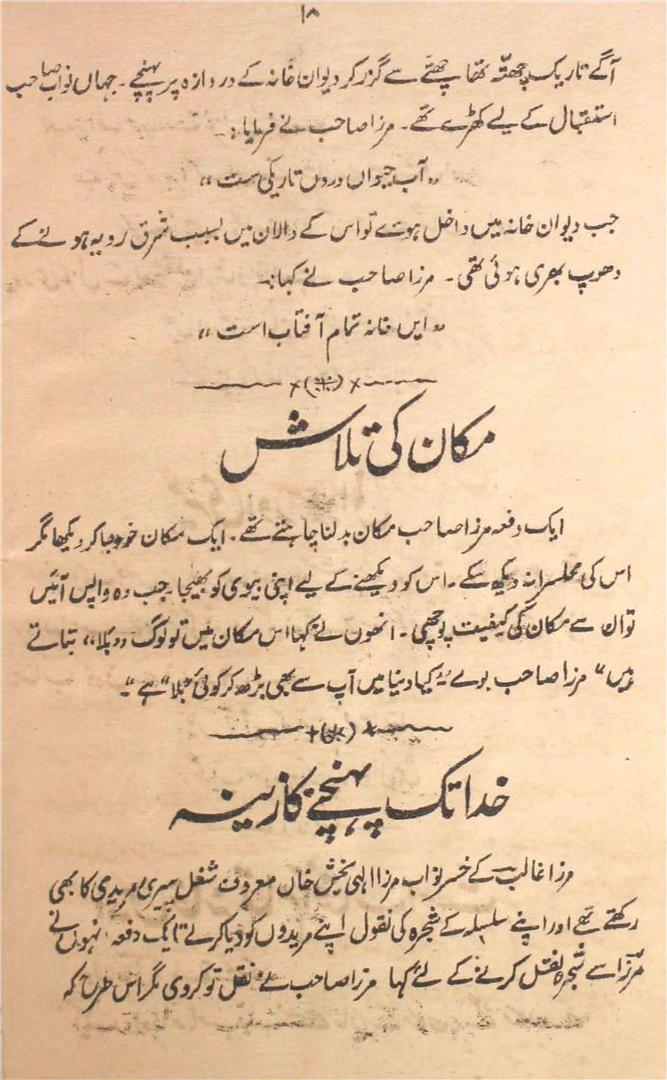 ۱۸
آگے تاریک چھتّہ تھا چھتّے سے گزر کر دیوان خانہ کے دروازہ پر پہنچے۔ جہاں نواب صاحب
استقبال کے لیے کھڑے تھے۔ مرزا صاحب نے فرمایا:۔
"آب حیواں دروں تاریکی ست"
جب دیوان خانہ میں داخل ہوئے تو اس کے دالان میں بسبب شرق رویہ ہونے کے
دھوپ بھری ہوئی تھی۔ مرزا صاحب نے کہا:۔
"ایں خانہ تمام آفتاب است"
مکان کی تلاش
ایک دفعہ مرزا صاحب مکان بدلنا چاہتے تھے۔ ایک مکان خود جا کر دیکھا مگر
اس کی محلسرا نہ دیکھ سکے۔ اس کو دیکھنے کے لیے اپنی بیوی کو بھیجا۔ جب وہ واپس آئیں
تو ان سے مکان کی کیفیت پوچھی۔ انھوں نے کہا اس مکان میں تو لوگ "بلا" بتاتے
ہیں" مرزا صاحب بولے "کیا دنیا میں آپ سے بھی بڑھ کر کوئی "بلا" ہے"۔
خدا تک پہنچنے کا زینہ
مرزا غالب کے خسر نواب مرزا الٰہی بخش خاں معروف شغل پیری مریدی کا بھی
رکھتے تھے اور اپنے سلسلہ کے شجرہ کی نقول اپنے مریدوں کو دیا کرتے ایک دفعہ انہوں نے
مرزا سے شجرہ نقل کرنے کے لئے کہا مرزا صاحب نے نقل تو کر دی مگر اس طرح کہ